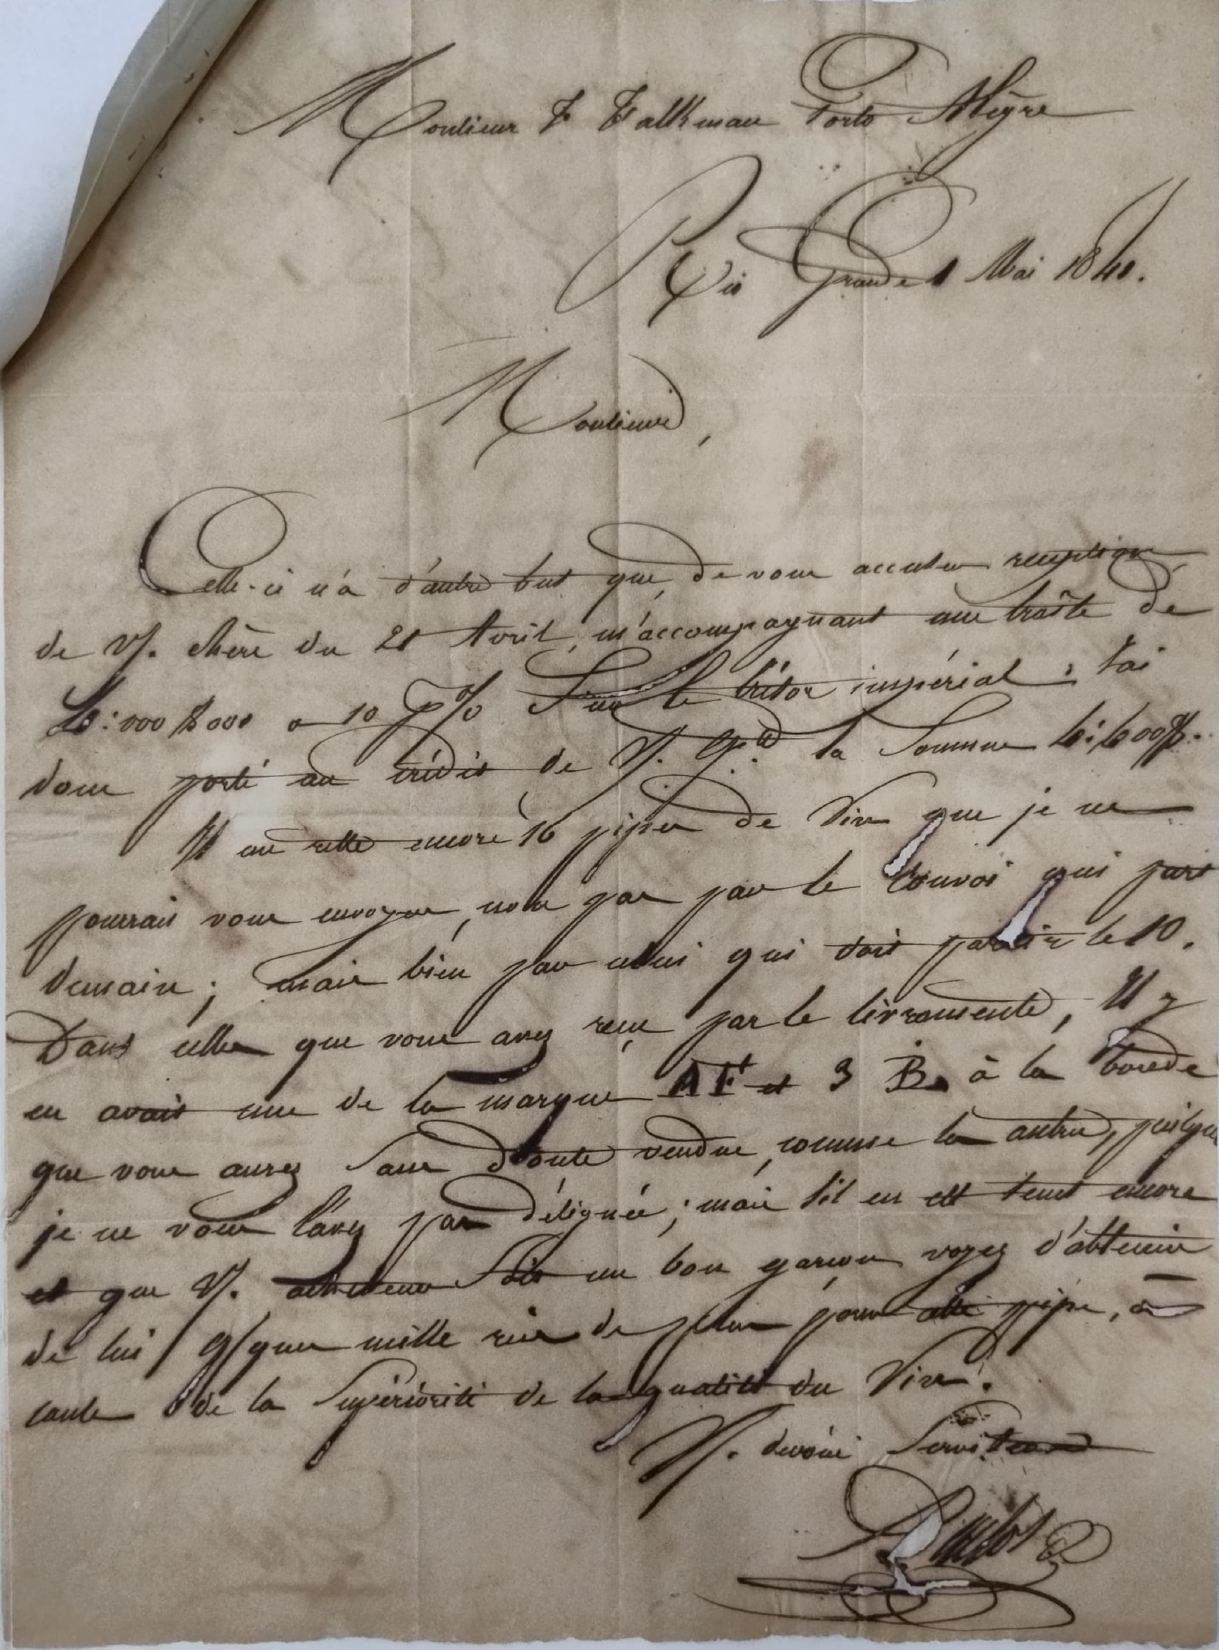 Monsieur F Falkman Porto Alègre
Rio Grande 1 Mai 1840.
Monsieur,
Celle-ci n'a d'autre but que de vous accuser reception
de V/. chère du 21 Avril, m'accompagnant une traîte de
6:000$000 a 10 p% Sur le trésor impérial; J'ai
donc porté au crédit de V. la Somme 6:600$.
Il me reste encore 16 pipes de Vin que je ne
pourrais vous envoyer, non pas par le Convoi qui part
demain; mais bien par celui qui doit partir le 10.
Dans celles que vous avez reçu par le livramente, Il y
en avait une de la marque AFt et 3 B. à la bonde
que vous aurez Sans doute vendue, comme les autres, puisque
je ne vous l'avez pas désignée; mais S'il en est tems encore
et que V/. acheteur Soit un bon garçon voyez d'obtenir
de lui q/ques mille reis de plus pour cette pipe, à
cause de la Supériorité de la qualité du Vin.
V/. devoué Serviteur